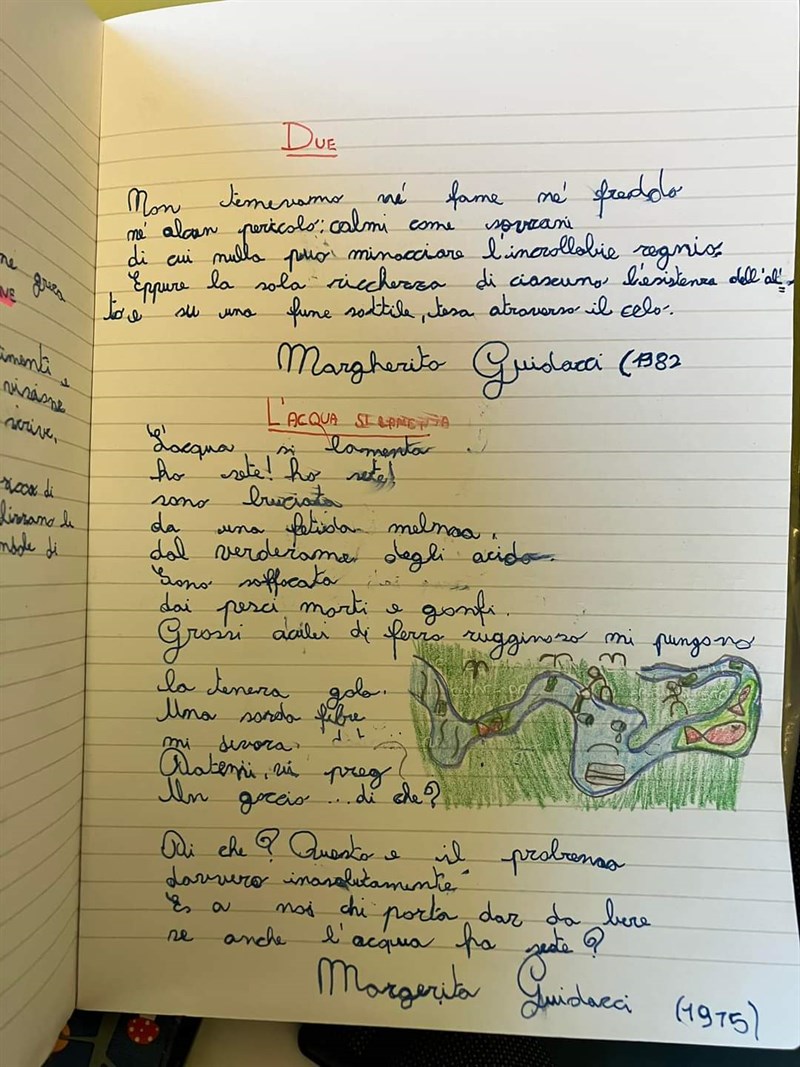 ne greca
NE
imenti e
visasne
scrive,
ricca di
lizzano le
ndole di
DUE
Non temevamo né fame né freddo
né alcun pericolo: calmi come sovrani
di cui nulla può minacciare l'incrollabile regnio.
Eppure la sola ricchezza di ciascuno l'esistenza dell'al=
to e su una fune sottile, tesa atraverso il celo.
Margherita Guidacci (1982
L'ACQUA SI LAMENTA
L'acqua si lamenta
ho sete! ho sete!
sono bruciata
da una fetida melma,
dal verderame degli acido
Sono soffocata
dai pesci morti e gonfi.
Grossi di ferro rugginoso mi pungono
la tenera gola.
Una sorda fibre
mi divora.
Datemi, vi preg
Un goccio ... di che?
Di che? Questo e il
davvero
E a noi chi porta dar da bere
se anche l'acqua ha sete?
Margerita Guidacci
(1975)